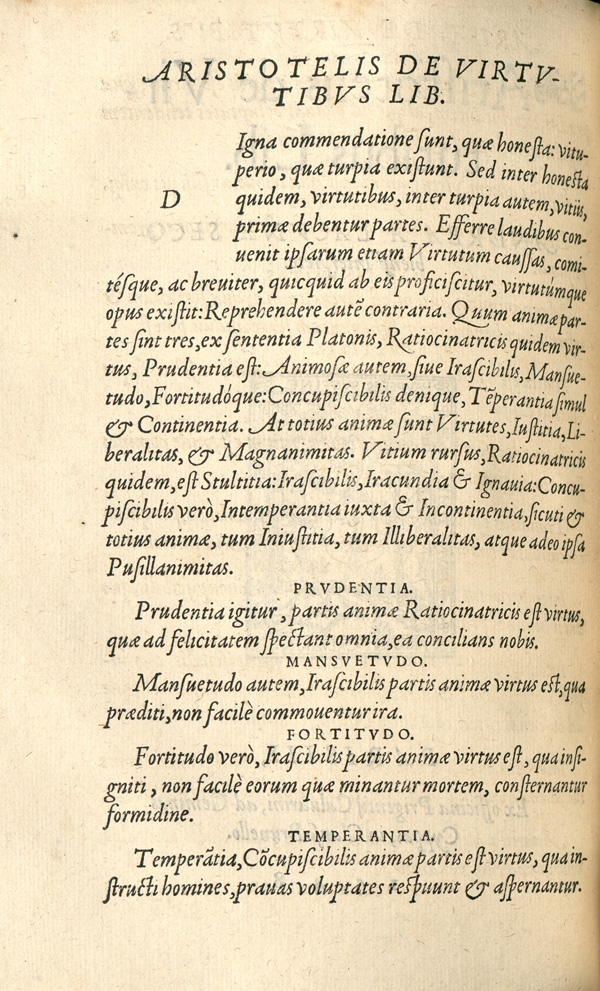 ARISTOTELIS DE VIRTV-
TIBVS LIB.
Igna commendatione ſunt, quæ honeſta: vitu-
perio, quæ turpia exiſtunt. Sed inter honeſta
D quidem, virtutibus, inter turpia autem, vitiis,
primæ debentur partes. Efferre laudibus con-
uenit ipſarum etiam Virtutum cauſſas, comi-
téſque, ac breuiter, quicquid ab eis proficiſcitur, virtutúmque
opus exiſtit: Reprehendere autẽ contraria. Quum animæ par-
tes ſint tres, ex ſententia Platonis, Ratiocinatricis quidem vir-
tus, Prudentia eſt: Animoſæ autem, ſiue Iraſcibilis, Manſue-
tudo, Fortitudóque: Concupiſcibilis denique, Tẽperantia ſimul
& Continentia. At totius animæ ſunt Virtutes, Iuſtitia, Li-
beralitas, & Magnanimitas. Vitium rurſus, Ratiocinatricis
quidem, eſt Stultitia: Iraſcibilis, Iracundia & Ignauia: Concu-
piſcibilis verò, Intemperantia iuxta & Incontinentia, ſicuti &
totius animæ, tum Iniuſtitia, tum Illiberalitas, atque adeo ipſa
Puſillanimitas.
PRVDENTIA.
Prudentia igitur, partis animæ Ratiocinatricis eſt virtus,
quæ ad felicitatem ſpectant omnia, ea concilians nobis.
MANSVETVDO.
Manſuetudo autem, Iraſcibilis partis animæ virtus eſt, qua
præditi, non facilè commouentur ira.
FORTITVDO.
Fortitudo verò, Iraſcibilis partis animæ virtus eſt, qua inſi-
gniti, non facilè eorum quæ minantur mortem, conſternantur
formidine.
TEMPERANTIA.
Temperãtia, Cõcupiſcibilis animæ partis eſt virtus, qua in-
ſtructi homines, prauas voluptates reſpuunt & aſpernantur.